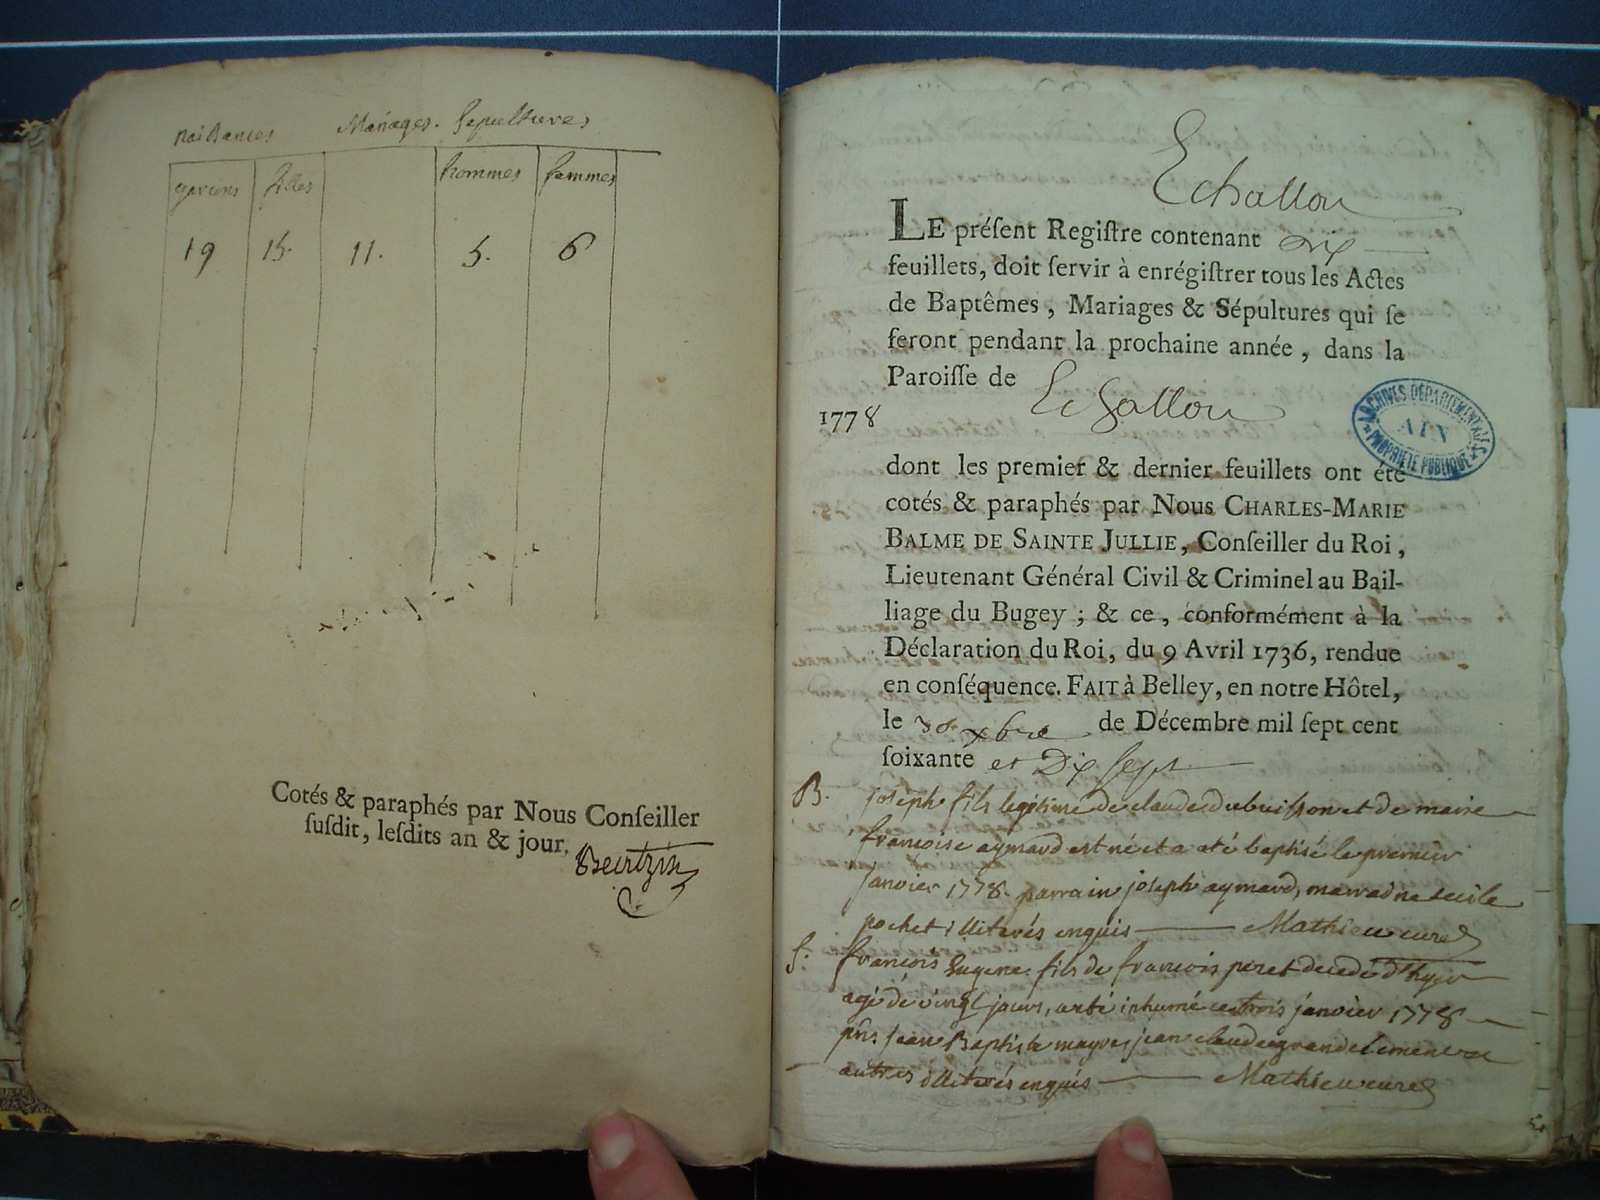 naissances Mariages. Sepultures
garcons filles hommes femmes
19 15. 11. 5. 6
Cotés & paraphés par Nous Conſeiller
ſuſdit, leſdits an & jour.
Echallon
LE préſent Regiſtre contenant dix
feuillets, doit ſervir à enrégiſtrer tous les Actes
de Baptêmes, Mariages & Sépultures qui ſe
feront pendant la prochaine année, dans la
Paroiſſe de Echallon
1778
ARCHIVES DÉPARTEMENTALES
AIN
PROPRIÉTÉ PUBLIQUE
dont les premier & dernier feuillets ont été
cotés & paraphés par Nous CHARLES-MARIE
BALME DE SAINTE JULLIE, Conſeiller du Roi,
Lieutenant Général Civil & Criminel au Bail-
liage du Bugey; & ce, conformément à la
Déclaration du Roi, du 9 Avril 1736, rendue
en conſéquence. FAIT à Belley, en notre Hôtel,
le xbre de Décembre mil ſept cent
ſoixante et Dix sept
B. joseph fils legitime de claude dubuisson et de marie
francoise aymard est né et a été baptisé le premier
janvier 1778. parrain joseph aymard, marraine
pochet illiterés enquis Mathieu curé
S. francois Eugene fils de francois peret decedé d'hyer
agé de vingt jours, a été inhumé ce trois janvier 1778
pns. jean Baptiste jean claude grandclement et
autres illiterés enquis Mathieu curé